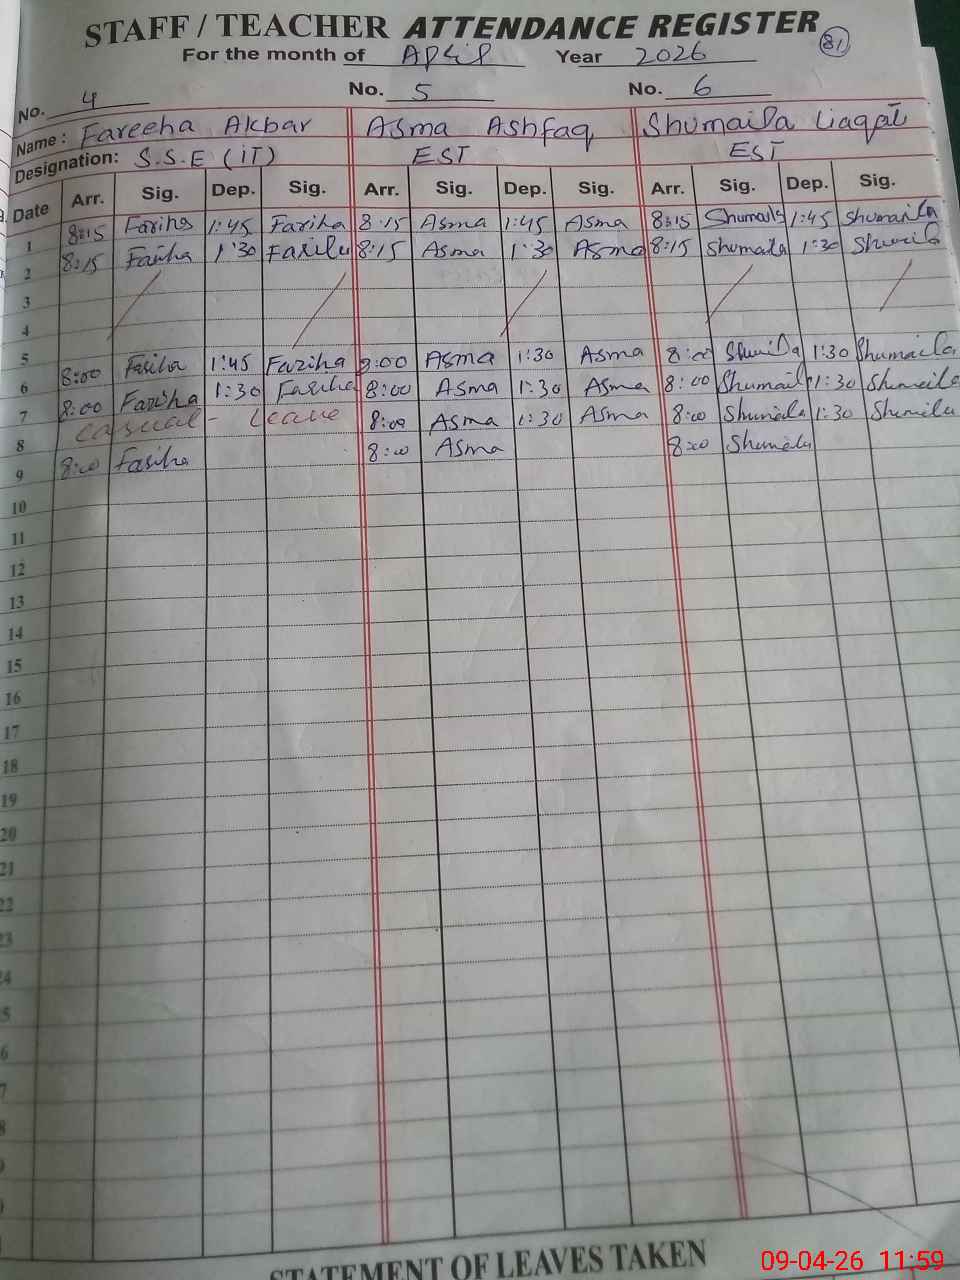 STAFF / TEACHER ATTENDANCE REGISTER
81
For the month of April Year 2026
No. 4 No. 5 No. 6
Name: Fareeha Akbar Asma Ashfaq Shumaila Liaqat
Designation: S.S.E (IT) EST EST
Date Arr. Sig. Dep. Sig. Arr. Sig. Dep. Sig. Arr. Sig. Dep. Sig.
1 8:15 Fariha 1:45 Fariha 8:15 Asma 1:45 Asma 8:15 Shumaila 1:45 Shumaila
2 8:15 Fariha 1:30 Fariha 8:15 Asma 1:30 Asma 8:15 Shumaila 1:30 Shumaila
3
4
5
6 8:00 Fariha 1:45 Fariha 8:00 Asma 1:30 Asma 8:00 Shumaila 1:30 Shumaila
7 8:00 Fariha 1:30 Fariha 8:00 Asma 1:30 Asma 8:00 Shumaila 1:30 Shumaila
8 Casual - Leave 8:00 Asma 1:30 Asma 8:00 Shumaila 1:30 Shumaila
9 8:00 Fariha 8:00 Asma 8:00 Shumaila
10
11
12
13
14
15
16
17
18
19
20
21
22
23
24
STATEMENT OF LEAVES TAKEN
09-04-26 11:59